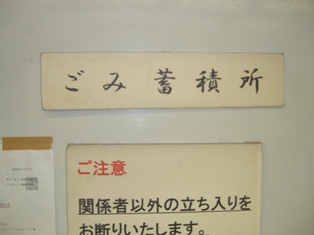 ごみ蓄積所
ご注意
関係者以外の立ち入りを
お断りいたします。